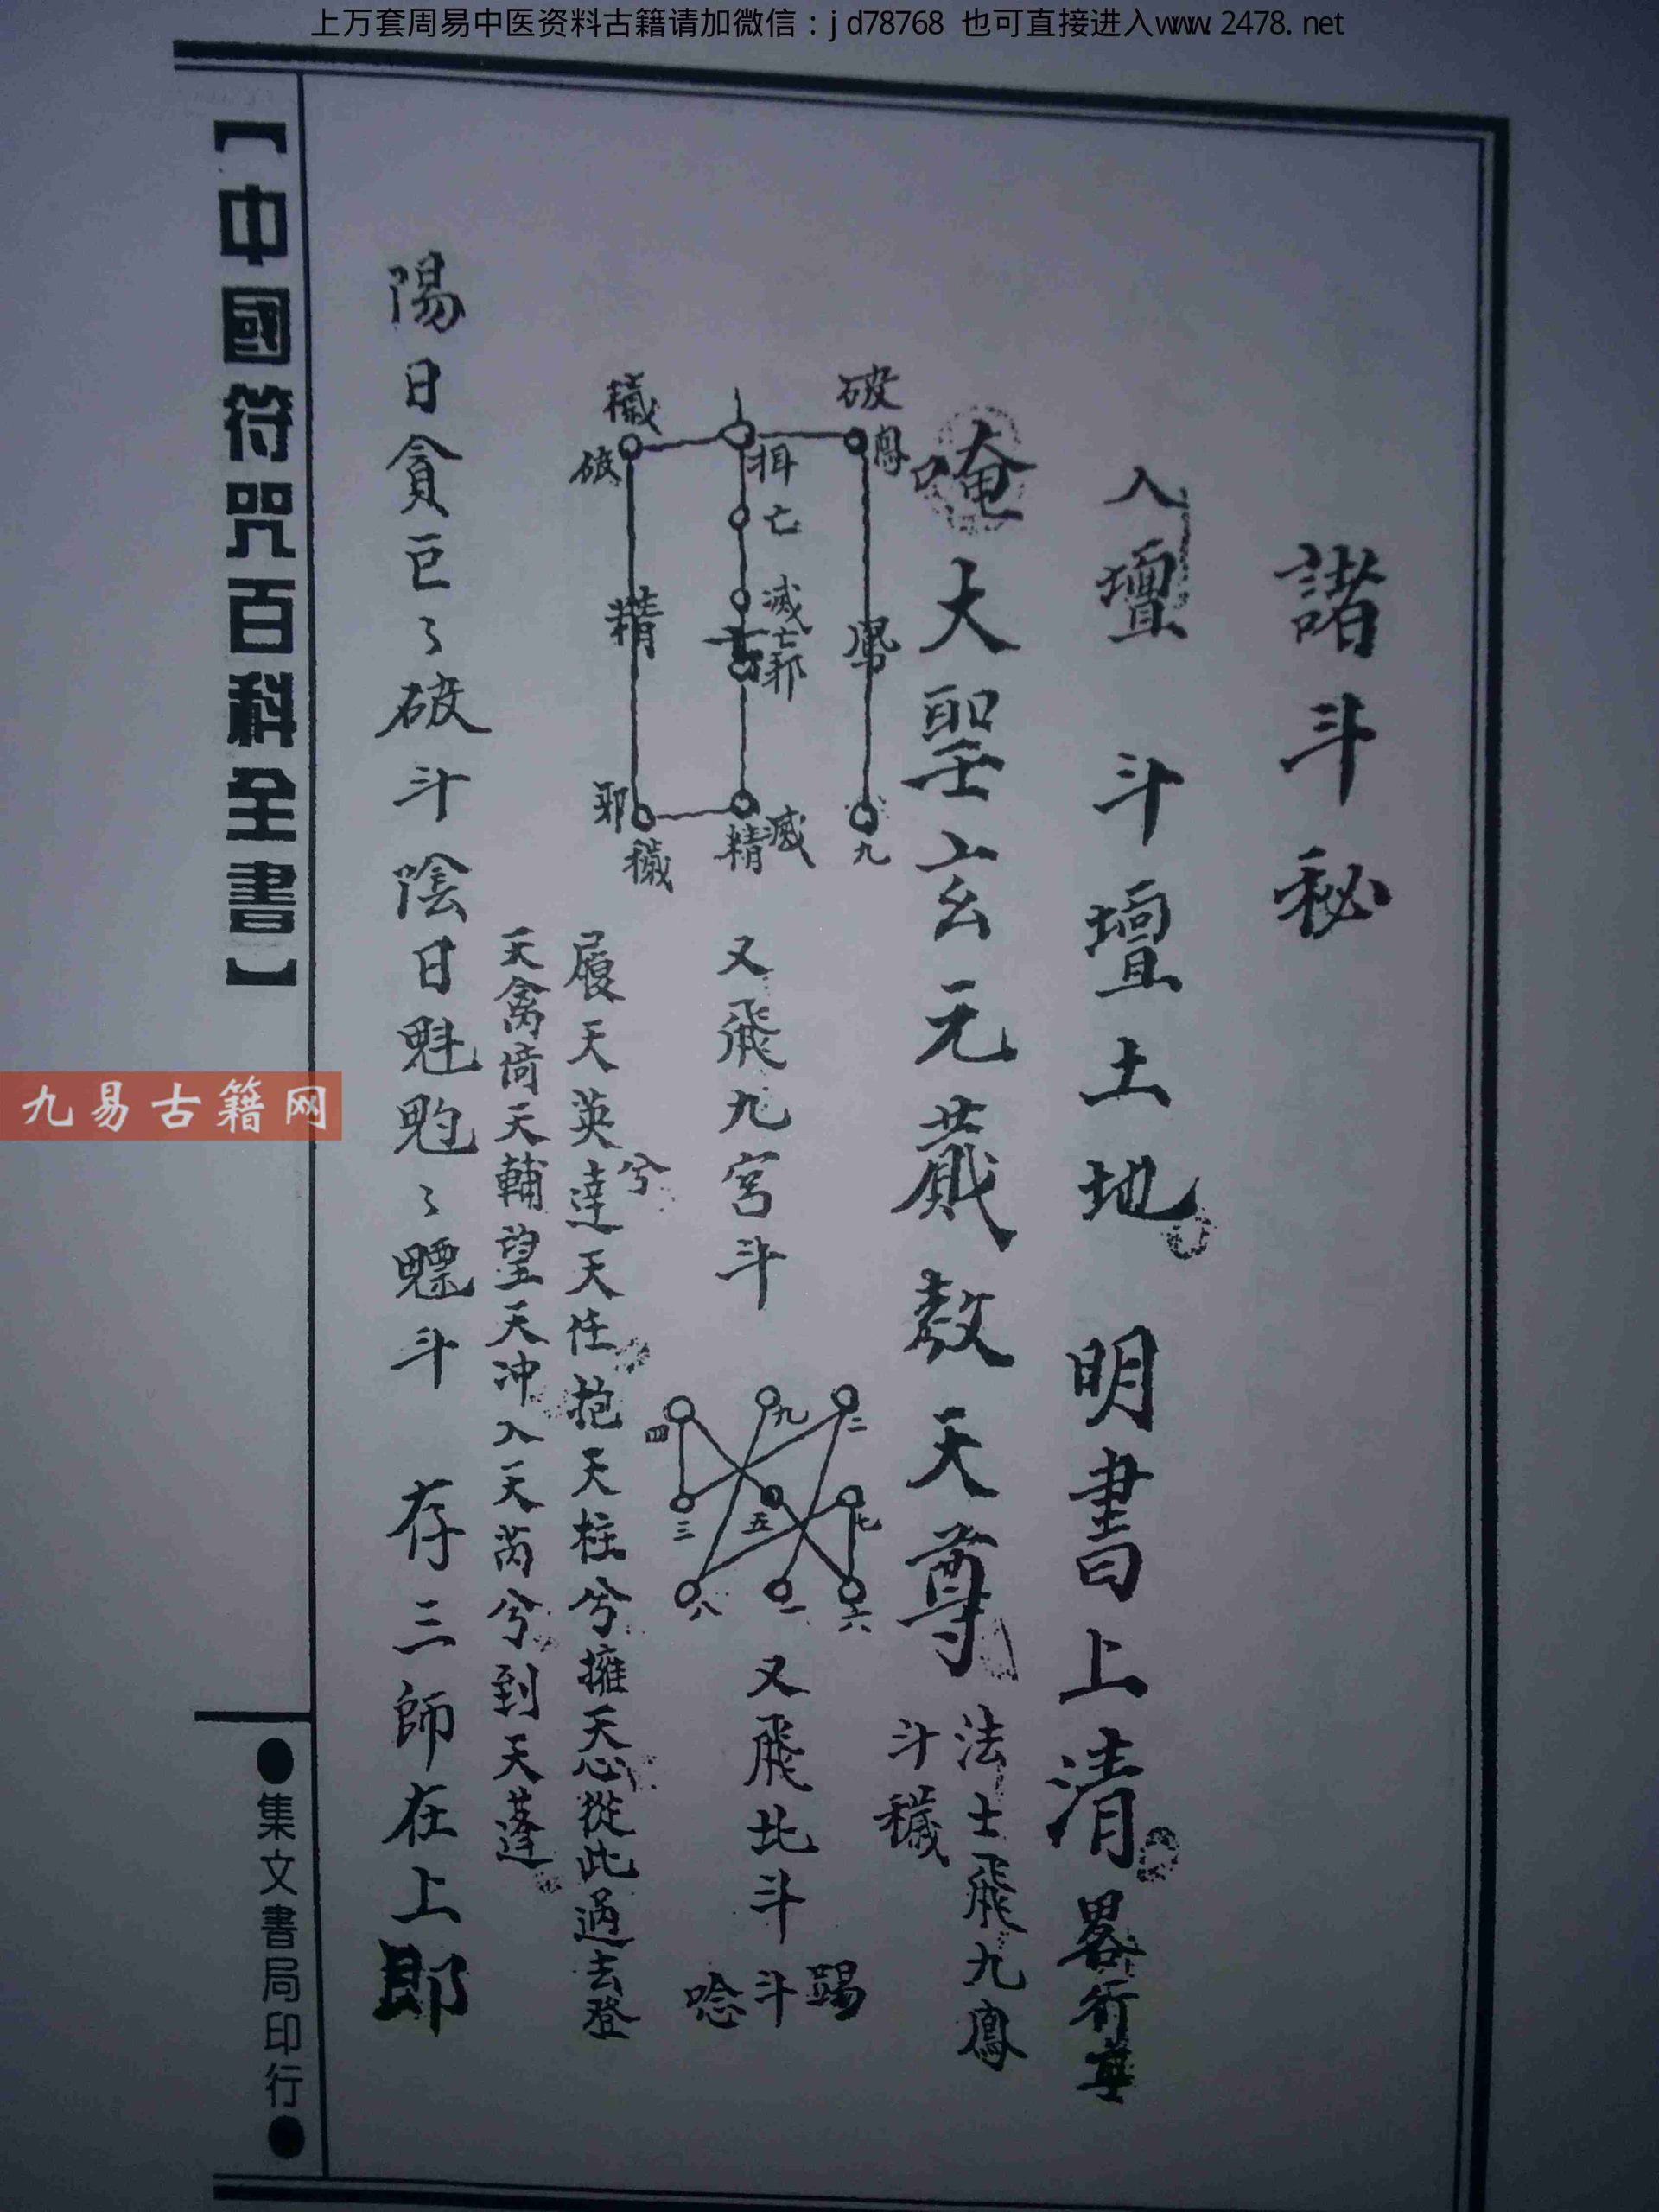 上万套周易中医资料古籍请加微信：jd78768 也可直接进入www.2478.net
諸斗秘
入壇 斗壇土地 明書上清 畧行
唵大聖玄元蕆教天尊 法士飛九鳳
斗穢
破 鳳 鳳 九
亡 滅 亡 邪 滅 精
穢 破 精 邪 穢
又飛九宮斗
四 九 二
三 五 七
八 一 六
又飛北斗
踢斗唸
履天英兮達天任抱天柱兮擁天心從此過去登
天禽倚天輔望天冲入天芮兮到天蓬
陽日貪巨々破斗陰日魁魁々魒斗 存三師在上郎
【中國符咒百科全書】
●集文書局印行●
九易古籍网